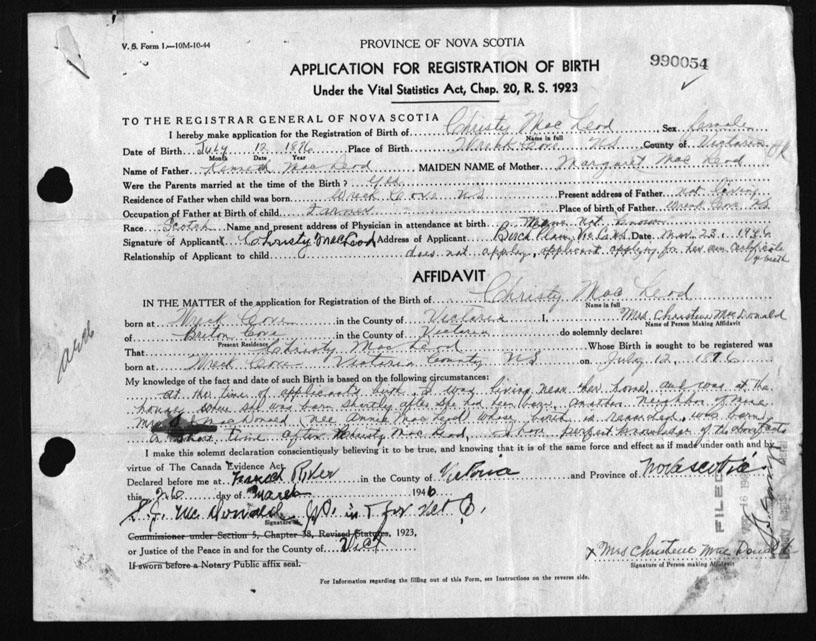 V. S. Form 1.—10M-10-44
PROVINCE OF NOVA SCOTIA
990054
APPLICATION FOR REGISTRATION OF BIRTH
Under the Vital Statistics Act, Chap. 20, R. S. 1923
TO THE REGISTRAR GENERAL OF NOVA SCOTIA
I hereby make application for the Registration of Birth of Christy Mac Leod Sex female
Name in full
Date of Birth July 12 1876 Place of Birth Wreck Cove NS County of Victoria
Month Date Year
Name of Father Mac Leod MAIDEN NAME of Mother Margaret Mac Leod
Were the Parents married at the time of the Birth? Yes
Residence of Father when child was born Wreck Cove NS Present address of Father not living
Occupation of Father at Birth of child Farmer Place of birth of Father Wreck Cove NS
Race Scotch Name and present address of Physician in attendance at birth Name not known
Signature of Applicant x Christy MacLeod Address of Applicant Birch Plain Date Mar 23, 1946
Relationship of Applicant to child does not apply, applicant applying for her own certificate of birth
AFFIDAVIT
IN THE MATTER of the application for Registration of the Birth of Christy Mac Leod
Name in full
born at Wreck Cove in the County of Victoria I, Mrs. Christene MacDonald
Name of Person Making Affidavit
of Briton Cove in the County of Victoria do solemnly declare:
Present Residence
That Christy Mac Leod Whose Birth is sought to be registered was
born at Wreck Cove Victoria County NS on July 12, 1876
My knowledge of the fact and date of such Birth is based on the following circumstances:
at the time of applicant's birth, I was living near her home, and was at the
house where she was born shortly after she had been born. Another neighbor of mine
Mrs MacDonald (nee Annie MacLeod) whose birth is recorded, was born
a short time after Christy Mac Leod, I have perfect knowledge of the above facts
I make this solemn declaration conscientiously believing it to be true, and knowing that it is of the same force and effect as if made under oath and by
virtue of The Canada Evidence Act.
Declared before me at River in the County of Victoria and Province of Nova Scotia
this 26 day of March 1946
S. J. Mc Donald J.P. in & for Vict. C.
Signature
Commissioner under Section 5, Chapter 38, Revised Statutes, 1923,
or Justice of the Peace in and for the County of Vict
If sworn before a Notary Public affix seal.
FILED
x Mrs Christene Mac Donald
Signature of Person making Affidavit
For Information regarding the filling out of this Form, see Instructions on the reverse side.